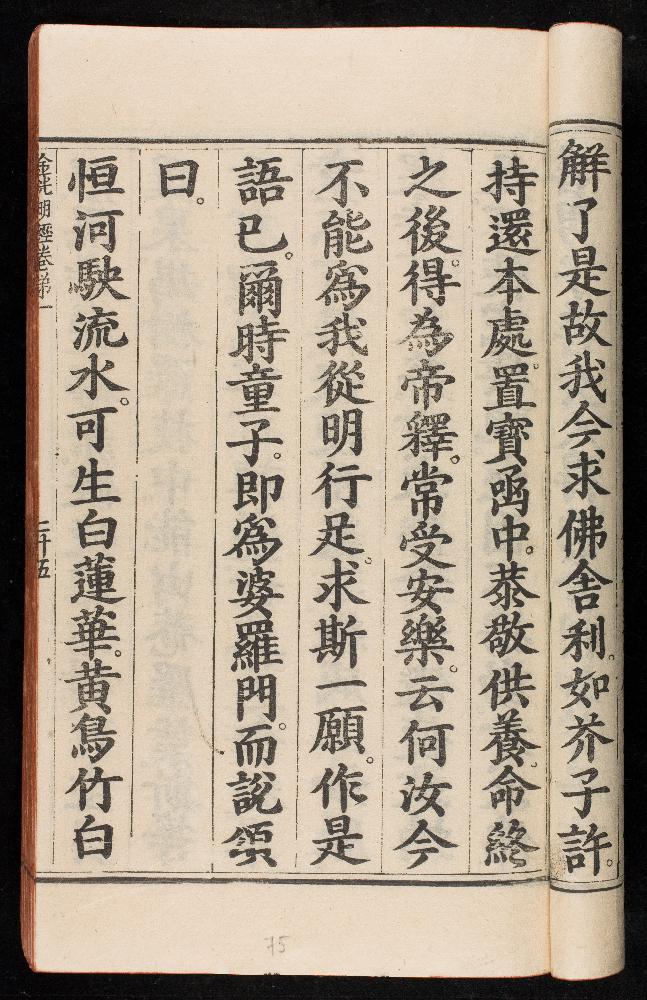 解了是故我今求佛舍利。如芥子許。
持還本處。置寶函中。恭敬供養。命終
之後。得為帝釋。常受安樂。云何汝今
不能爲我從明行足。求斯一願。作是
語已。爾時童子。即爲婆羅門。而說頌
曰。
恒河駛流水。可生白蓮華。黄鳥竹白
金光明經卷第一
二十五
75